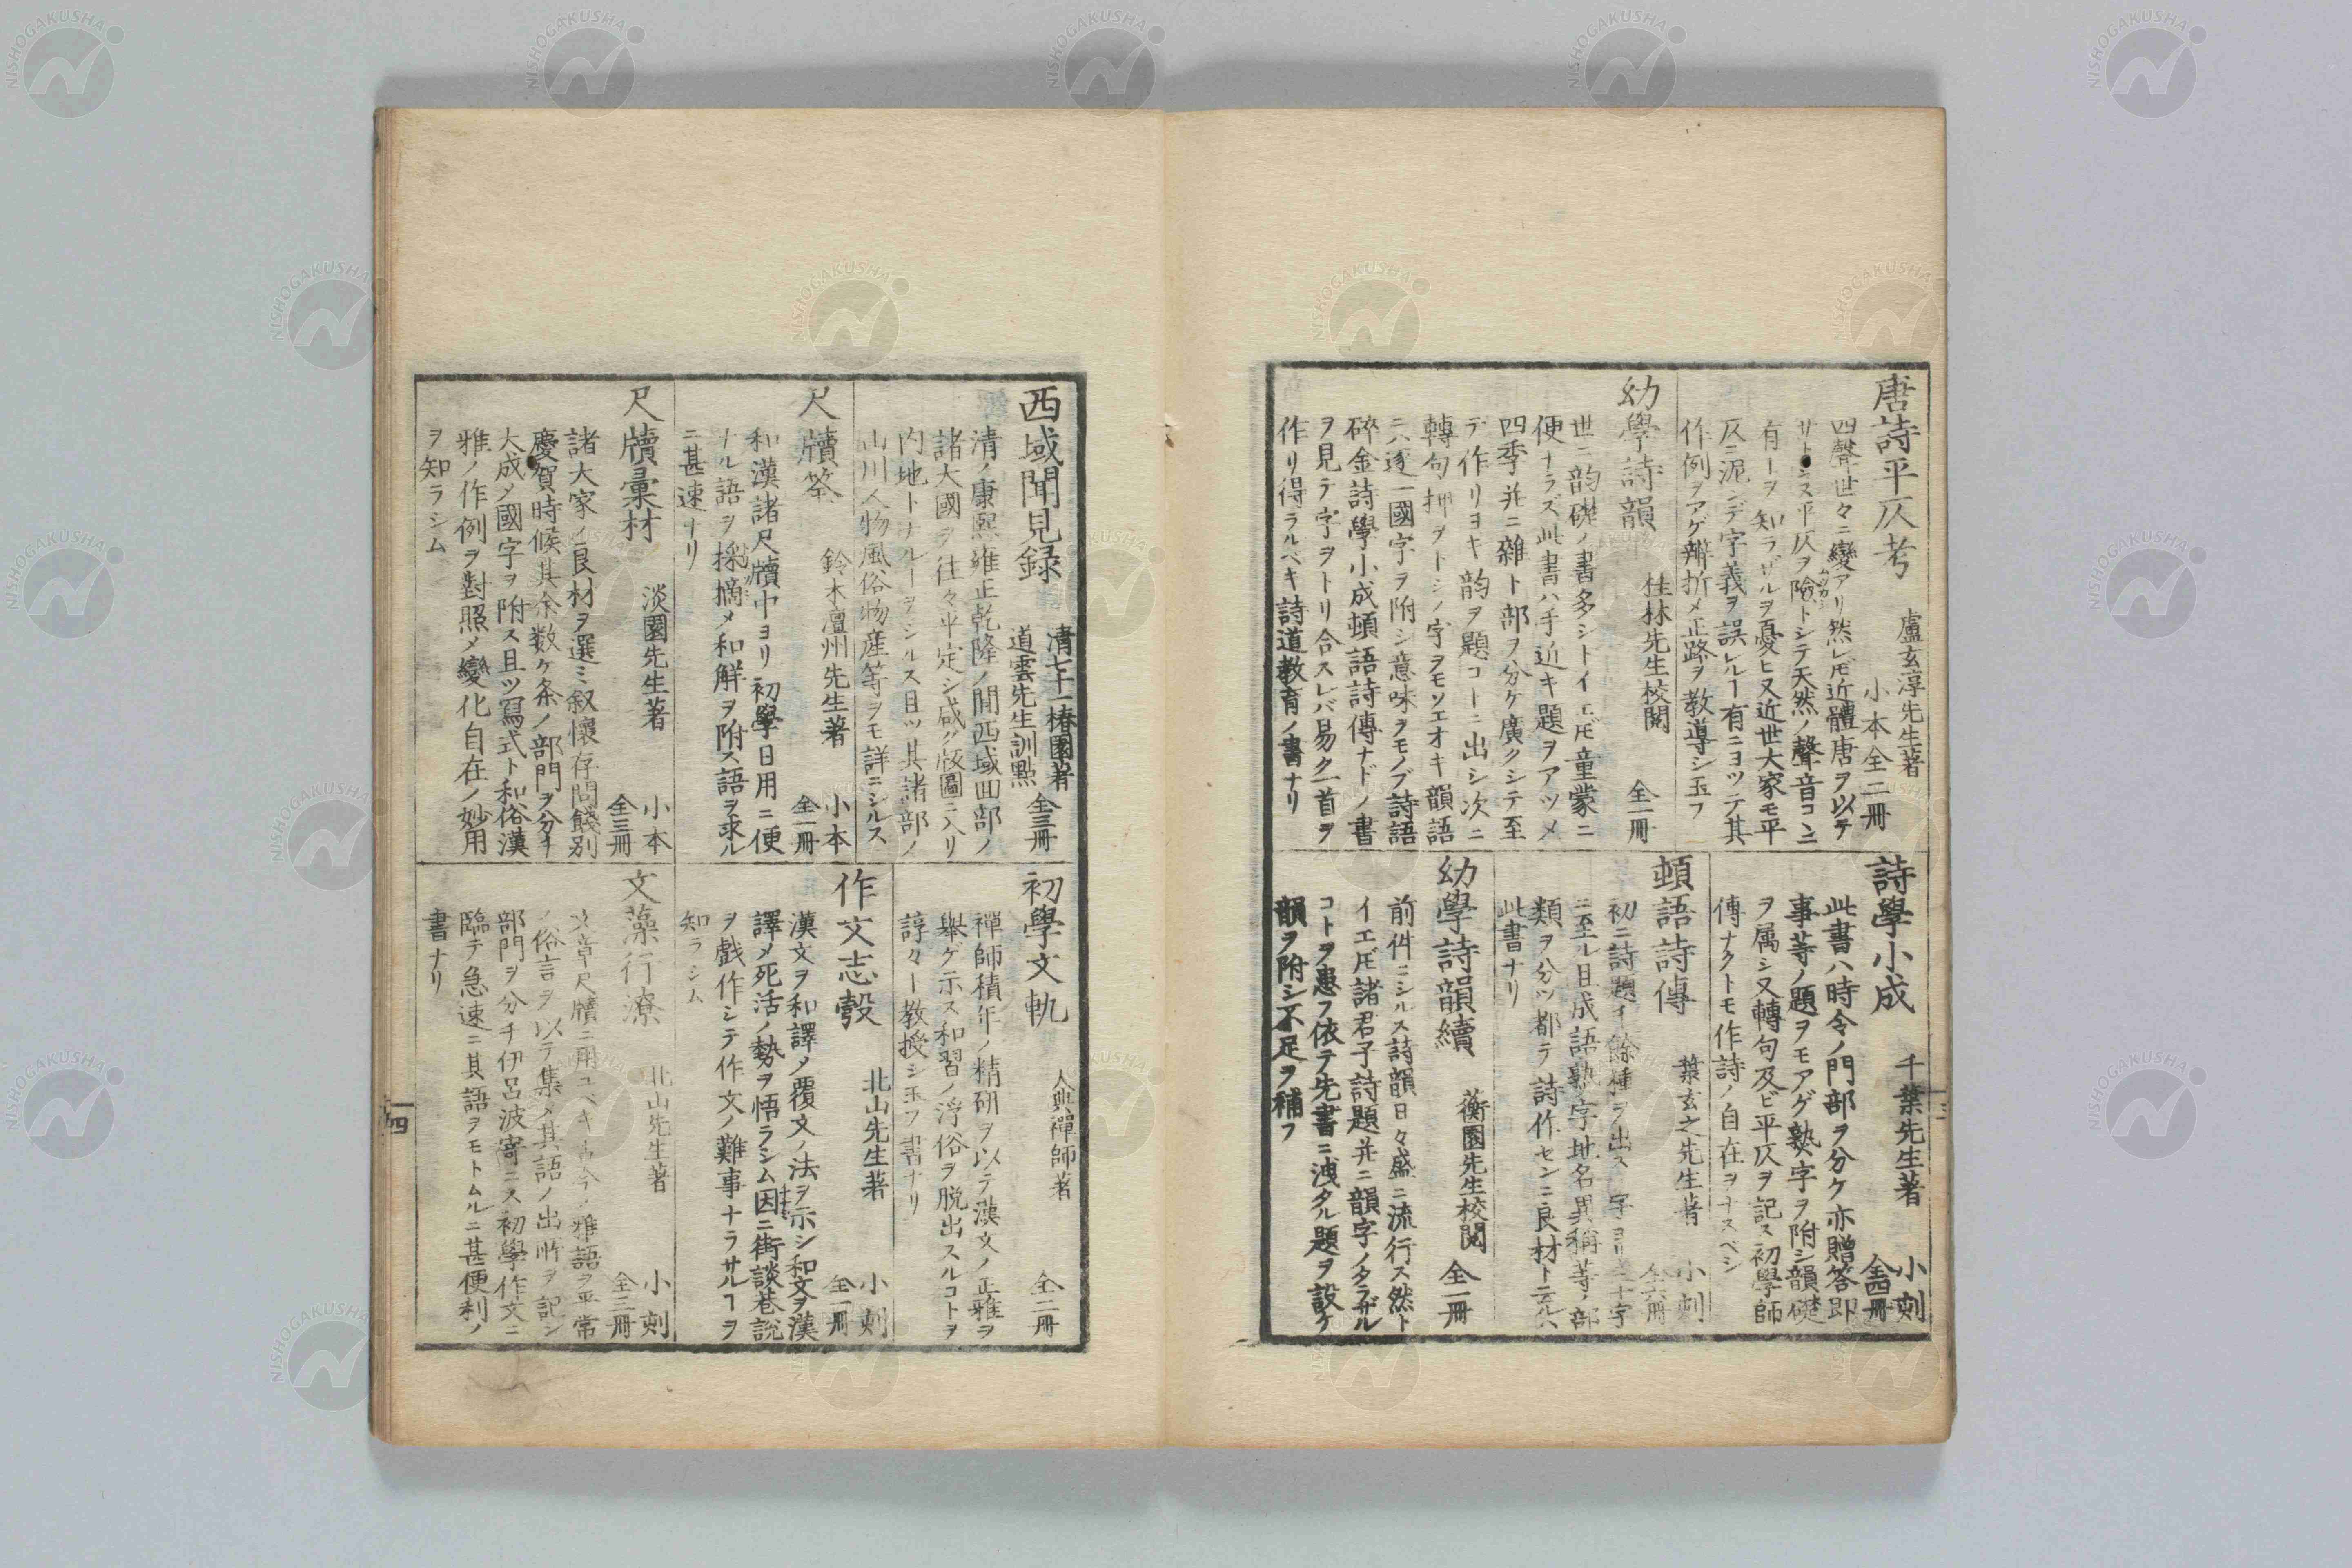 唐詩平仄考
盧玄淳先生著
小本全二冊
四聲世々ニ變アリ然レ𪜈近體唐ヲ以テ
サトシス平仄ヲ險トシテ天然ノ聲音コヽニ
有ヿヲ知ラザルヲ憂ヒ又近世大家モ平
仄ニ泥ンデ字義ヲ誤レルヿ有ニヨツテ其
作例ヲアゲ辨折メ正路ヲ教導シ玉フ
幼學詩韻
桂林先生校閲
全一冊
世ニ韵礎ノ書多シトイエ𪜈童蒙ニ
便ナラズ此書ハ手近キ題ヲアツメ
四季并ニ雜ト部ヲ分ケ廣クシテ至
テ作リヨキ韵ヲ題コトニ出シ次ニ
轉句押ヲトシノ字ヲモソエオキ韻語
ニ六逐一國字ヲ附シ意味ヲモノブ詩語
碎金詩學小成頓語詩傳ナドノ書
ヲ見テ字ヲトリ合スレバ易ク一首ヲ
作リ得ラルベキ詩道教育ノ書ナリ
詩學小成
千葉先生著
小刻
全四冊
此書ハ時令ノ門部ヲ分ケ亦贈答即
事等ノ題ヲモアゲ熟字ヲ附シ韻礎
ヲ属シ又轉句及ビ平仄ヲ記ス初學師
傳ナクトモ作詩ノ自在ヲナスベシ
頓語詩傳
葉玄之先生著
小刻
全六冊
初ニ詩題千餘種ヲ出ス字ヨリ二十字
ニ至ル目成語熟字地名異稱等ノ部
類ヲ分ツ都テ詩作センニ良材ト云ルハ
此書ナリ
幼學詩韻續
蘅園先生校閲
全一冊
前件ニシルス詩韻日々盛ニ流行ス然ト
イエ𪜈諸君子詩題并ニ韻字ノタラザル
コトヲ患フ依テ先書ニ洩タル題ヲ設ケ
韻ヲ附シ不足ヲ補フ
三
西域聞見録
清七十一椿園著
道雲先生訓點
全三冊
清ノ康熙雍正乾隆ノ間西域回部ノ
諸大國ヲ往々平定シ咸ク版圖ニ入リ
内地トナルヿヲシルス且ツ其諸部ノ
山川人物風俗物産等ヲモ詳ニシルス
尺牘筌
鈴木澶州先生著
小本
全一冊
和漢諸尺牘中ヨリ初學日用ニ便
ナル語ヲ採摘メ和解ヲ附ス語ヲ求ル
ニ甚速ナリ
尺牘彙材
淡園先生著
小本
全三冊
諸大家ノ良材ヲ選ミ叙懷存問餞別
慶賀時候其余数ケ条ノ部門ヲ分チ
大成メ國字ヲ附ス且ツ冩式ト和俗漢
雅ノ作例ヲ對照メ變化自在ノ妙用
ヲ知ラシム
初學文軌
大典禪師著
全二冊
禪師積年ノ精研ヲ以テ漢文ノ正雅ヲ
舉ゲ示ス和習ノ浮俗ヲ脱出スルコトヲ
諄々ト教授シ玉フ書ナリ
作文志彀
北山先生著
小刻
全一冊
漢文ヲ和譯メ覆文ノ法ヲ示シ和文ヲ漢
譯メ死活ノ勢ヲ悟ラシム因ニ街談巷説
ヲ戲作シテ作文ノ難事ナラサルヿヲ
知ラシム
文藻行潦
北山先生著
小刻
全三冊
文章尺牘ニ用ユベキ古今ノ雅語ヲ平常
ノ俗言ヲ以テ集メ其語ノ出所ヲ記シ
部門ヲ分チ伊呂波寄ニス初學作文ニ
臨テ急速ニ其語ヲモトムルニ甚便利ノ
書ナリ
四
NISHOGAKUSHA